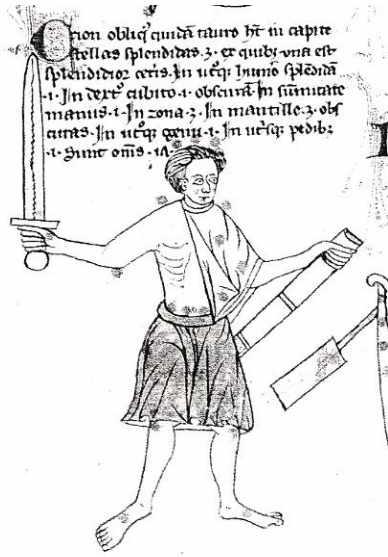 Orion obliq' quidā tauro ht in capite
stellas splendidas·3· ex quibȝ una est
splendidior cetis·In utqȝ humo splēdidā
·1· In dext° cubito·1· obscurā·In sūmitate
manus·1·In zona·3·In mantille·3·obs
curas·In utqȝ genu·1·In utsqȝ pedibȝ
·1·Sunt oms·1Λ·